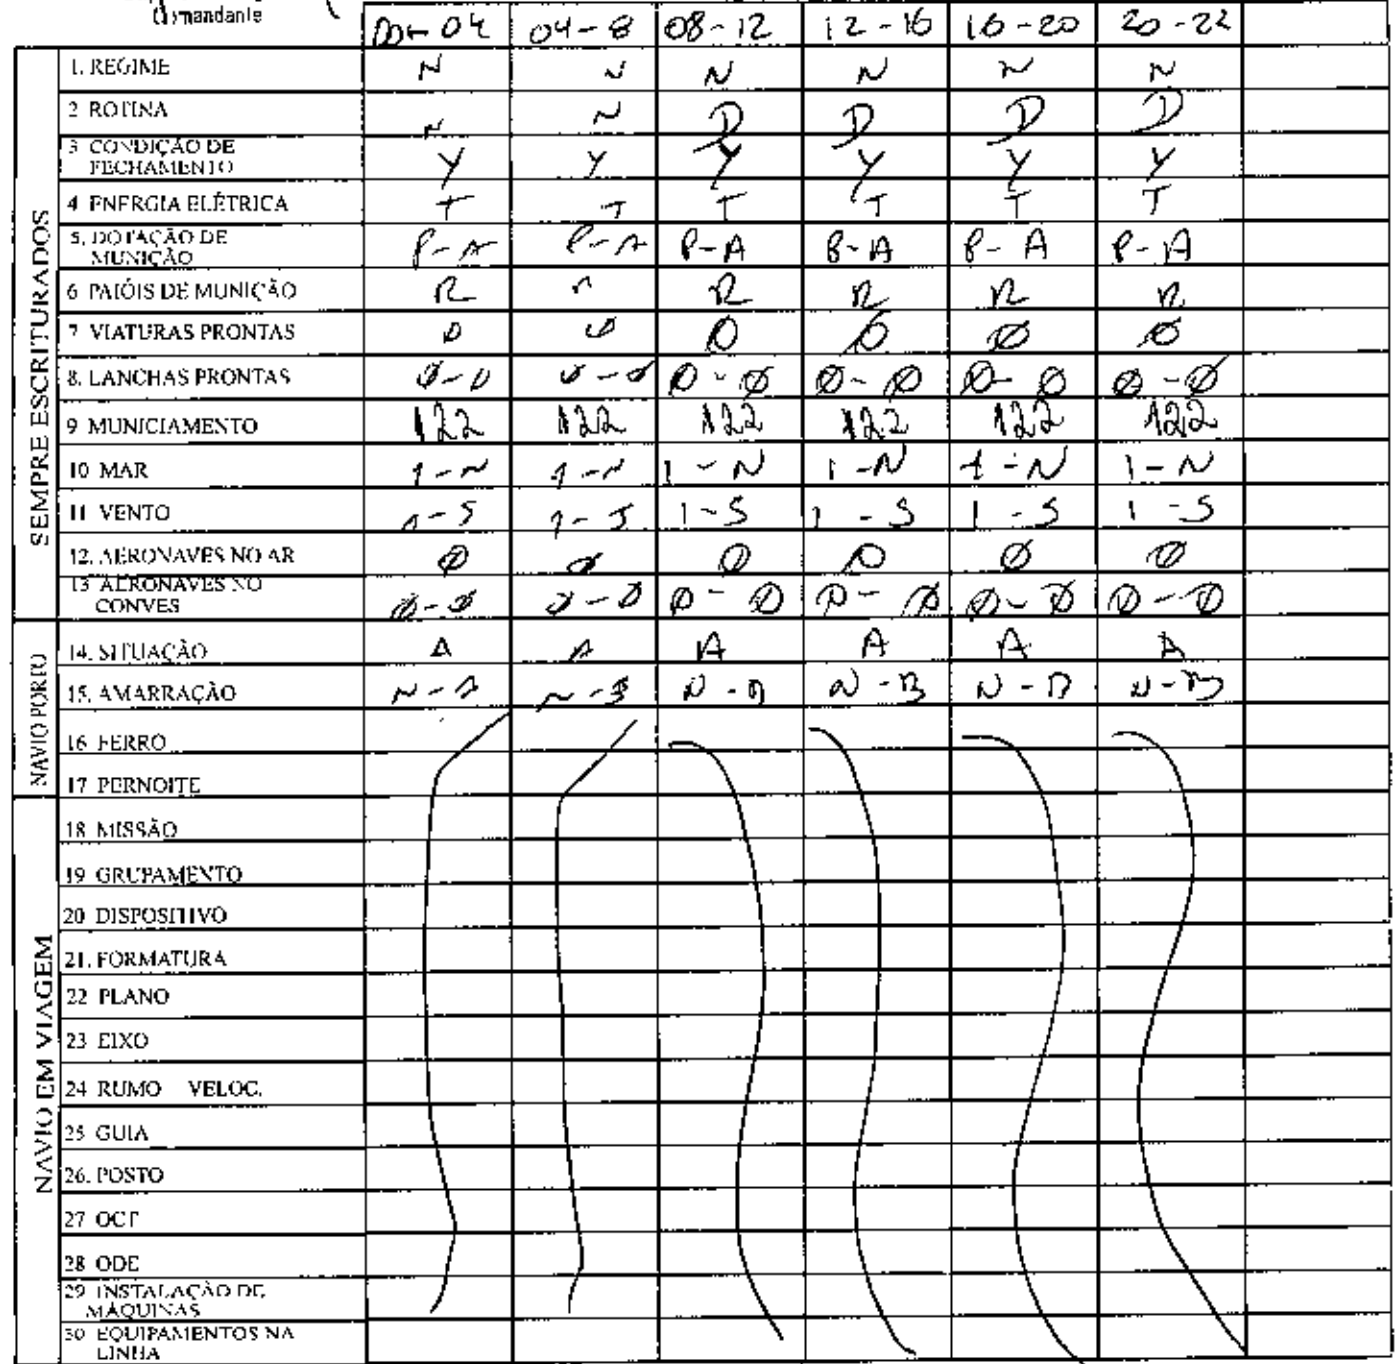 Comandante
00-04 04-8 08-12 12-16 16-20 20-22
SEMPRE ESCRITURADOS
1. REGIME N N N N N N
2 ROTINA N N D D D D
3 CONDIÇÃO DE
FECHAMENTO Y Y Y Y Y Y
4 ENERGIA ELÉTRICA T T T T T T
5. DOTAÇÃO DE
MUNIÇÃO P-A P-A P-A P-A P-A P-A
6 PAIÓIS DE MUNIÇÃO R R R R R
7 VIATURAS PRONTAS Ø Ø Ø Ø Ø Ø
8. LANCHAS PRONTAS Ø-Ø Ø-Ø Ø-Ø Ø-Ø Ø-Ø Ø-Ø
9 MUNICIAMENTO 122 122 122 122 122 122
10 MAR 1-N 1-N 1-N 1-N 1-N 1-N
11 VENTO 1-S 1-S 1-S 1-S 1-S 1-S
12. AERONAVES NO AR Ø Ø Ø Ø Ø Ø
13 AERONAVES NO
CONVES Ø-Ø Ø-Ø Ø-Ø Ø-Ø Ø-Ø Ø-Ø
NAVIO PORTO
14. SITUAÇÃO A A A A A A
15. AMARRAÇÃO N-B N-B N-B N-B N-B N-B
16 FERRO
17 PERNOITE
NAVIO EM VIAGEM
18. MISSÃO
19 GRUPAMENTO
20 DISPOSITIVO
21. FORMATURA
22 PLANO
23 EIXO
24 RUMO VELOC.
25 GUIA
26. POSTO
27 OCT
28 ODE
29 INSTALAÇÃO DE
MÁQUINAS
30 EQUIPAMENTOS NA
LINHA